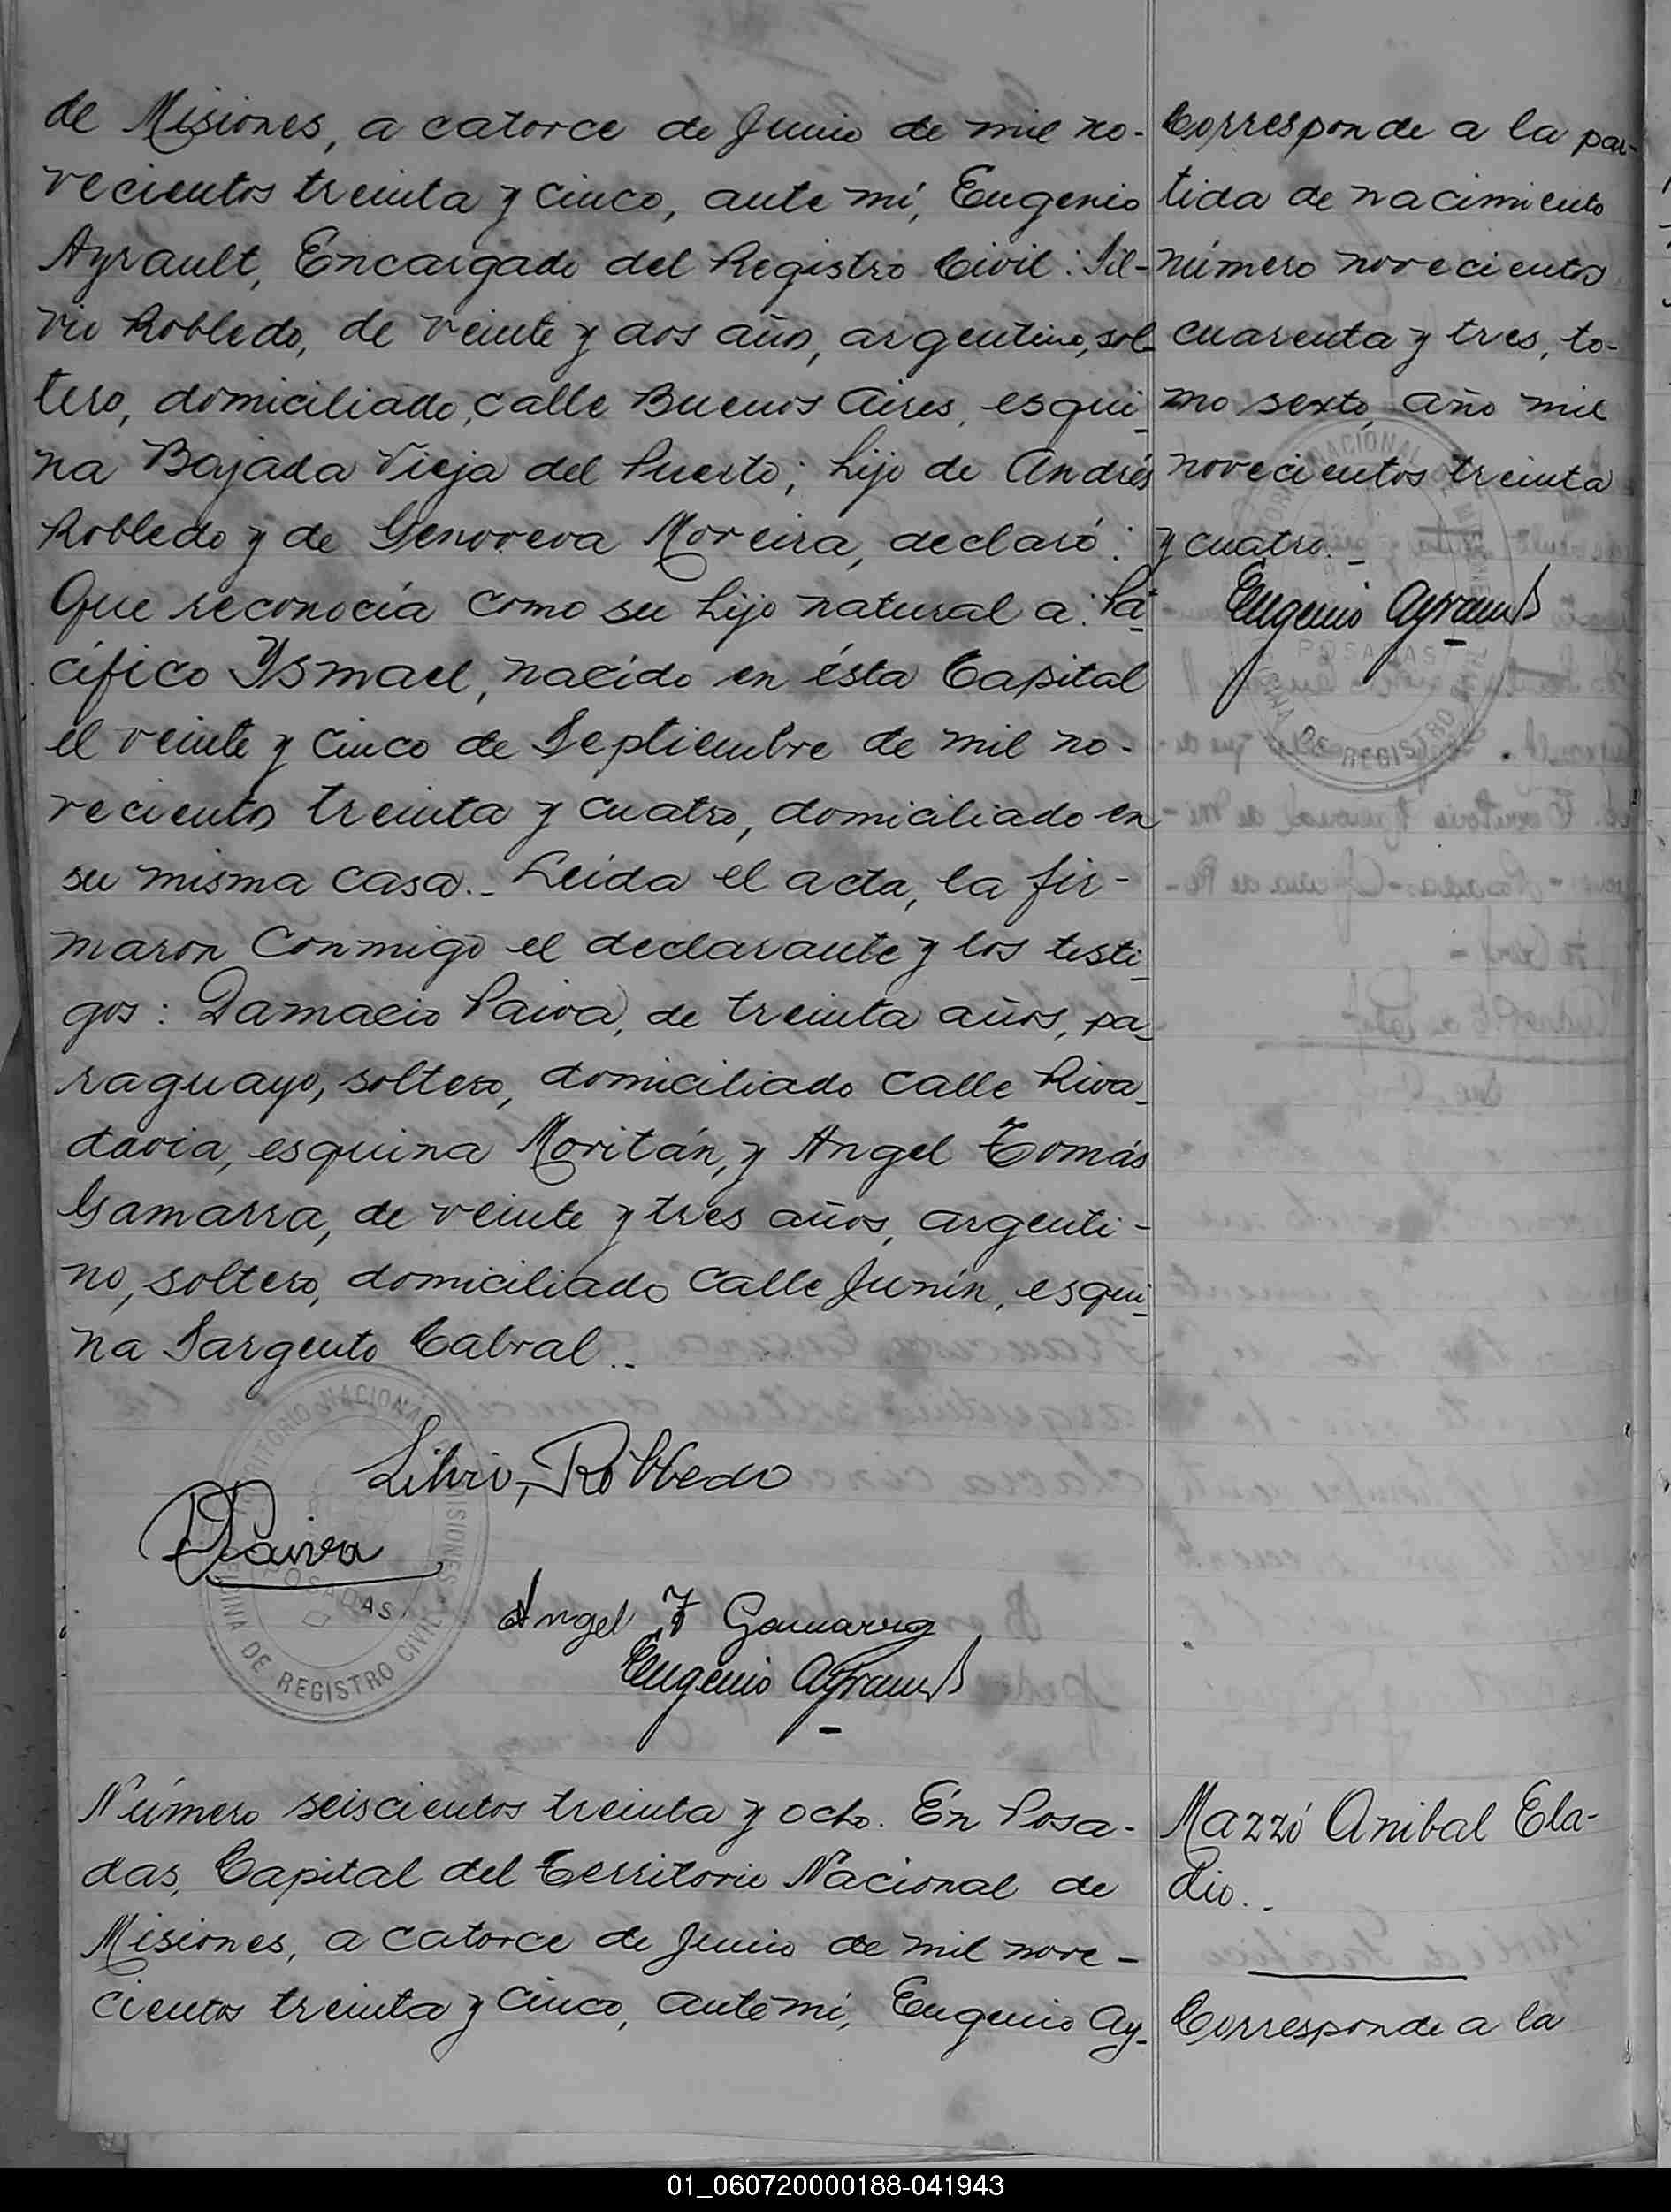 de Misiones, a catorce de Junio de mil no-
vecientos treinta y cinco, ante mí, Eugenio
Ayrault, Encargado del Registro Civil: Sil-
vio Robledo, de veinte y dos años, argentino, sol-
tero, domiciliado, calle Buenos Aires, esqui-
na Bajada Vieja del Puerto; hijo de Andrés
Robledo y de Genoveva Moreira, declaró:
Que reconocía como su hijo natural a: Pa-
cífico Ysmael, nacido en ésta Capital
el veinte y cinco de Septiembre de mil no-
vecientos treinta y cuatro, domiciliado en
su misma casa.- Leida el acta, la fir-
maron conmigo el declarante y los testi-
gos: Damacio Paiva, de treinta años, pa-
raguayo, soltero, domiciliado calle Riva-
davia, esquina Moritán, y Angel Tomás
Gamarra, de veinte y tres años, argenti-
no, soltero, domiciliado calle Junín, esqui-
na Sargento Cabral..
Silvio, Robledo
DPaiva
Angel T Gamarra
Eugenio Ayrault
TERRITORIO NACIONAL DE MISIONES
POSADAS
OFICINA DE REGISTRO CIVIL
Número seiscientos treinta y ocho. En Posa-
das, Capital del Territorio Nacional de
Misiones, a catorce de Junio de mil nove-
cientos treinta y cinco, ante mí, Eugenio Ay-
Corresponde a la par-
tida de nacimiento
número novecientos
cuarenta y tres, to-
mo sexto año mil
novecientos treinta
y cuatro.-
Eugenio Ayrault
POSADAS
Mazzó Anibal Ela-
dio..
Corresponde a la
01_060720000188-041943